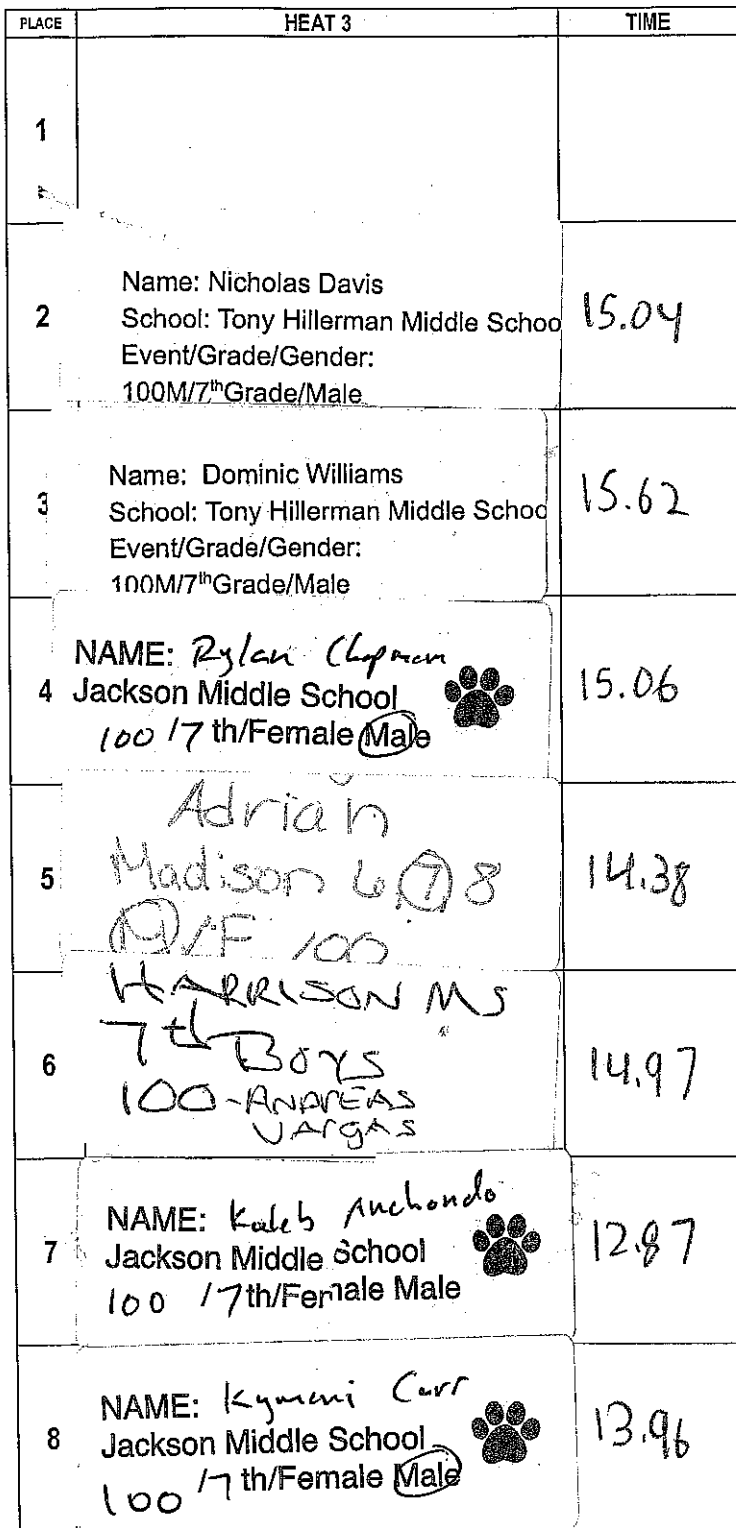 PLACE HEAT 3 TIME
1
2
Name: Nicholas Davis
School: Tony Hillerman Middle Schoo
Event/Grade/Gender:
100M/7thGrade/Male
15.04
3
Name: Dominic Williams
School: Tony Hillerman Middle Schoo
Event/Grade/Gender:
100M/7thGrade/Male
15.62
4
NAME: Rylan Chapman
Jackson Middle School
100 / 7 th/Female Male
15.06
5
Adrian
Madison 6 7 8
M/F 100
14.38
6
HARRISON MS
7th BOYS
100-ANDREAS
VARGAS
14.97
7
NAME: Kaleb Anchondo
Jackson Middle School
100 / 7th/Female Male
12.87
8
NAME: Kymani Carr
Jackson Middle School
100 / 7 th/Female Male
13.96